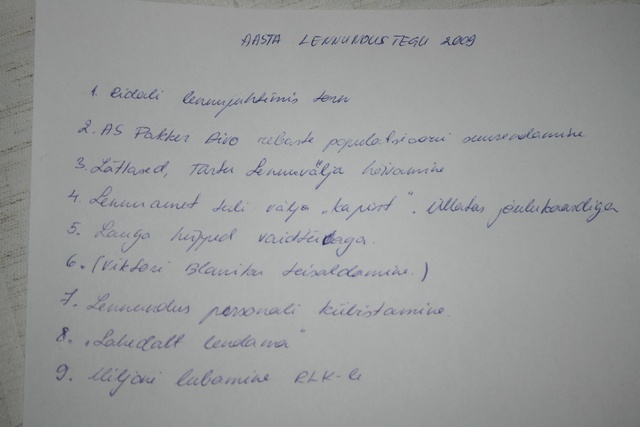 AASTA LENNUNDUSTEGU 2009
1. Ridali lennujuhtimis torn
2. AS Pakker Avio rebaste populatsiooni suurendamine
3. Lätlased, Tartu Lennuvälja heivamine
4. Lennuamet tuli välja "kapist". Üllatas jõulukaardiga
5. Langa hüpped
6. (Viktori Blaniku teisaldamine.)
7. Lennundus personali küüstamine.
8. "Lahedalt lendama"
9. Miljoni lubamine RLK-le